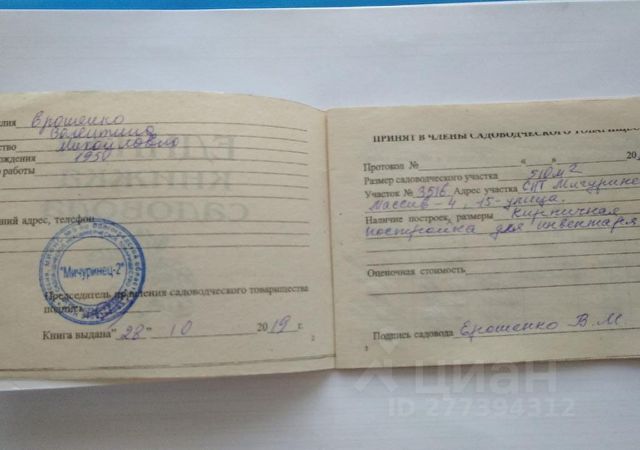 лия Ерошенко
Валентина
ство Михайловна
рождения 1950
работы
ний адрес, телефон
"Мичуринец-2"
Председатель правления садоводческого товарищества
подпись
Книга выдана "28" 10 2019 г.
2
ПРИНЯТ В ЧЛЕНЫ САДОВОДЧЕСКОГО ТОВАРИЩЕ
Протокол № " " 20
Размер садоводческого участка 510 м2
Участок № 3516 Адрес участка СНТ Мичурине
Массив-4, 15-улица.
Наличие построек, размеры Кирпичная
постройка для инвентаря
Оценочная стоимость
Подпись садовода Ерошенко В.М.
3
циан
ID 277394312